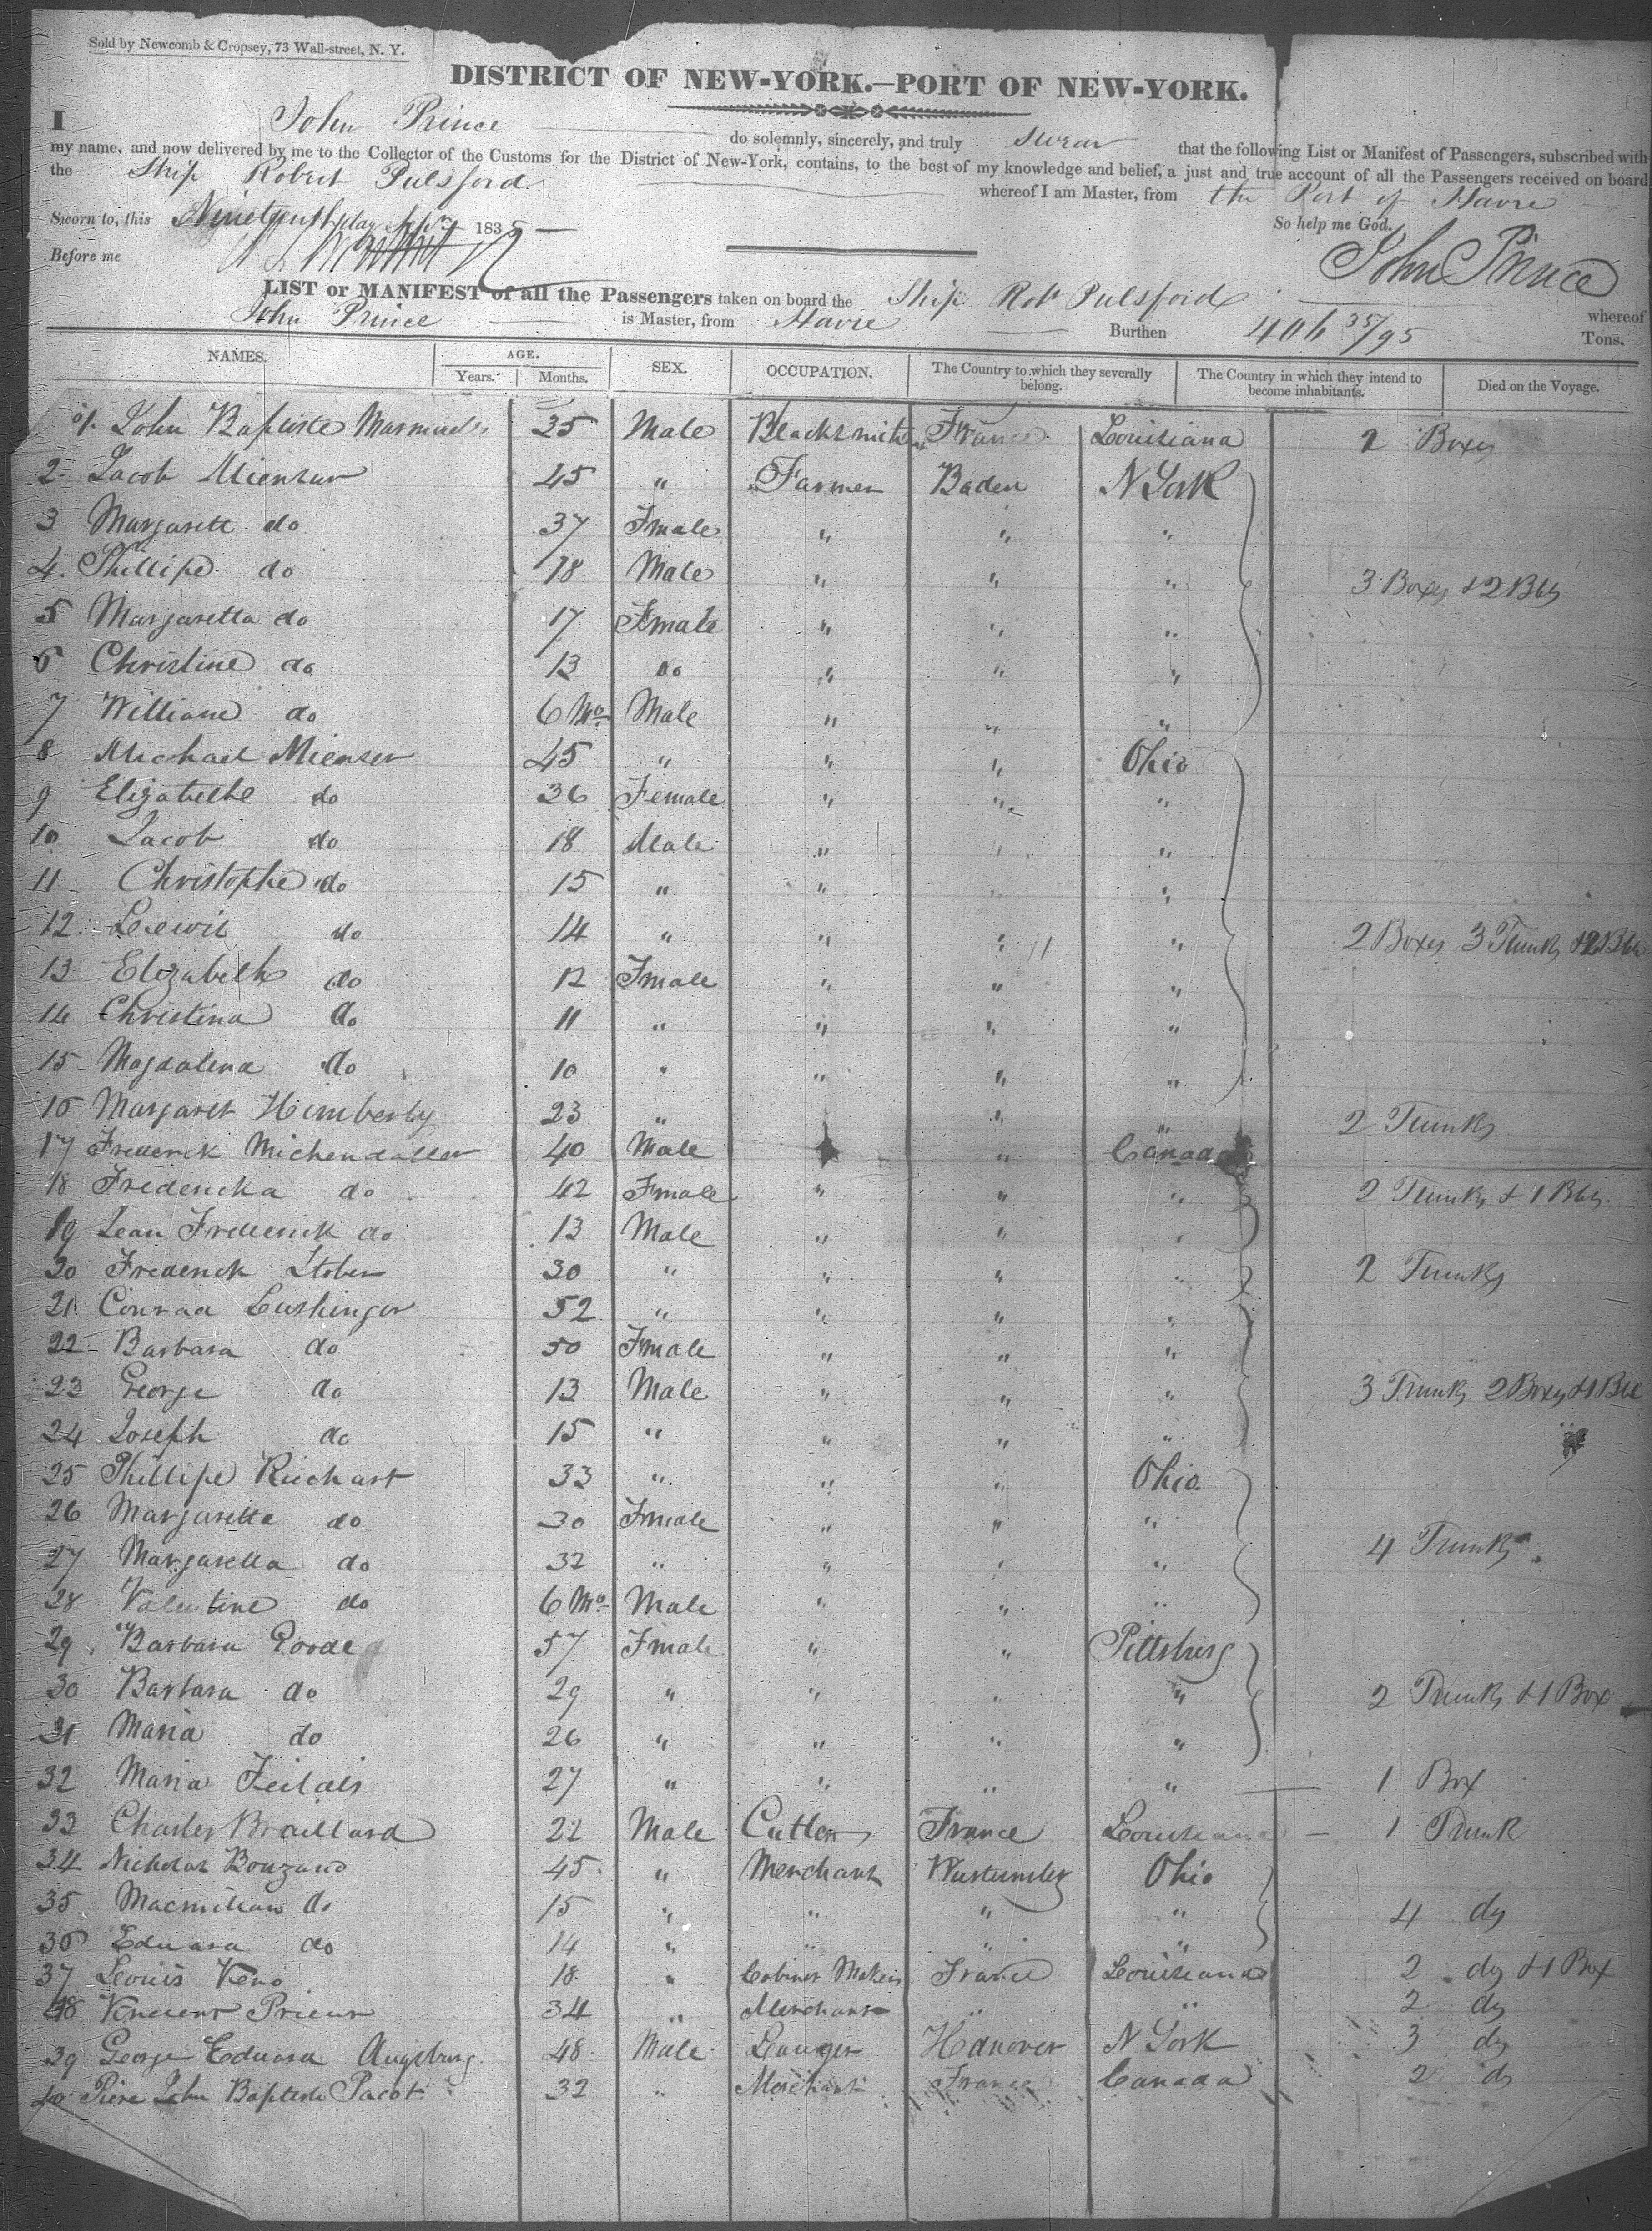 Sold by Newcomb & Cropsey, 73 Wall-street, N. Y.
DISTRICT OF NEW-YORK.—PORT OF NEW-YORK.
I John Prince do solemnly, sincerely, and truly swear that the following List or Manifest of Passengers, subscribed with
my name, and now delivered by me to the Collector of the Customs for the District of New-York, contains, to the best of my knowledge and belief, a just and true account of all the Passengers received on board
the Ship Robert Pulsford whereof I am Master, from the Port of Havre
Sworn to, this Nineteenth day 1835 So help me God.
Before me John Prince
LIST or MANIFEST of all the Passengers taken on board the Ship Robt Pulsford whereof
John Prince is Master, from Havre Burthen 406 35/95 Tons.
NAMES. AGE. Years. Months. SEX. OCCUPATION. The Country to which they severally belong. The Country in which they intend to become inhabitants. Died on the Voyage.
1 John Baptiste 35 Male Blacksmith France Louisiana 2 Boxes
2 Jacob Mienzer 45 " Farmer Baden N York
3 Margarett do 37 Fmale " " "
4. Phillipe do 18 Male " " " 3 Boxes & 2 Bbls
5 Margaretta do 17 Fmale " " "
6 Christine do 13 do " " "
7 William do 6 Mo. Male " " "
8 Michael Mienzer 45 " " " Ohio
9 Elizabethe do 36 Female " " "
10 Jacob do 18 Male " "
11 Christophe do 15 " " "
12 Lewis do 14 " " " " 2 Boxes 3 Trunks & 2 Bbls
13 Elizabeth do 12 Fmale " " "
14 Christina do 11 " " " "
15 Magdalena do 10 " " " "
16 Margaret Himberly 23 " " " 2 Trunks
17 Frederick Michendaller 40 Male " Canada
18 Fredericka do 42 Fmale " " " 2 Trunks & 1 Bbls
19 Jean Frederick do 13 Male " " "
20 Frederick Stober 30 " " " " 2 Trunks
21 Conrad Lushinger 52 " " " "
22 Barbara do 50 Fmale " " "
23 George do 13 Male " " " 3 Trunks 2 Boxes & 1 Bbl
24 Joseph do 15 " " " "
25 Phillipe Riechart 33 " " " Ohio
26 Margaretta do 30 Fmale " " "
27 Margaretta do 32 " " " " 4 Trunks
28 Valentine do 6 Mo. Male " " "
29 Barbara Goode 57 Fmale " " Pittsburg
30 Barbara do 29 " " " " 2 Trunks & 1 Box
31 Maria do 26 " " " "
32 Maria 27 " " " " 1 Box
33 Charles Braillard 22 Male Cutler France Louisiana 1 Trunk
34 Nicholas Bouzano 45 " Merchant Ohio
35 do 15 " " " " 4 do
36 Eduard do 14 " " " "
37 Louis Keno 18 " Cabinet Maker France Louisiana 2 do & 1 Box
38 Vincent Prieur 34 " Merchant " " 2 do
39 George Eduard Augsburg 48 Male Hanover N York 3 do
40 Piere John Baptiste Pacot 32 " Merchant France Canada 2 do